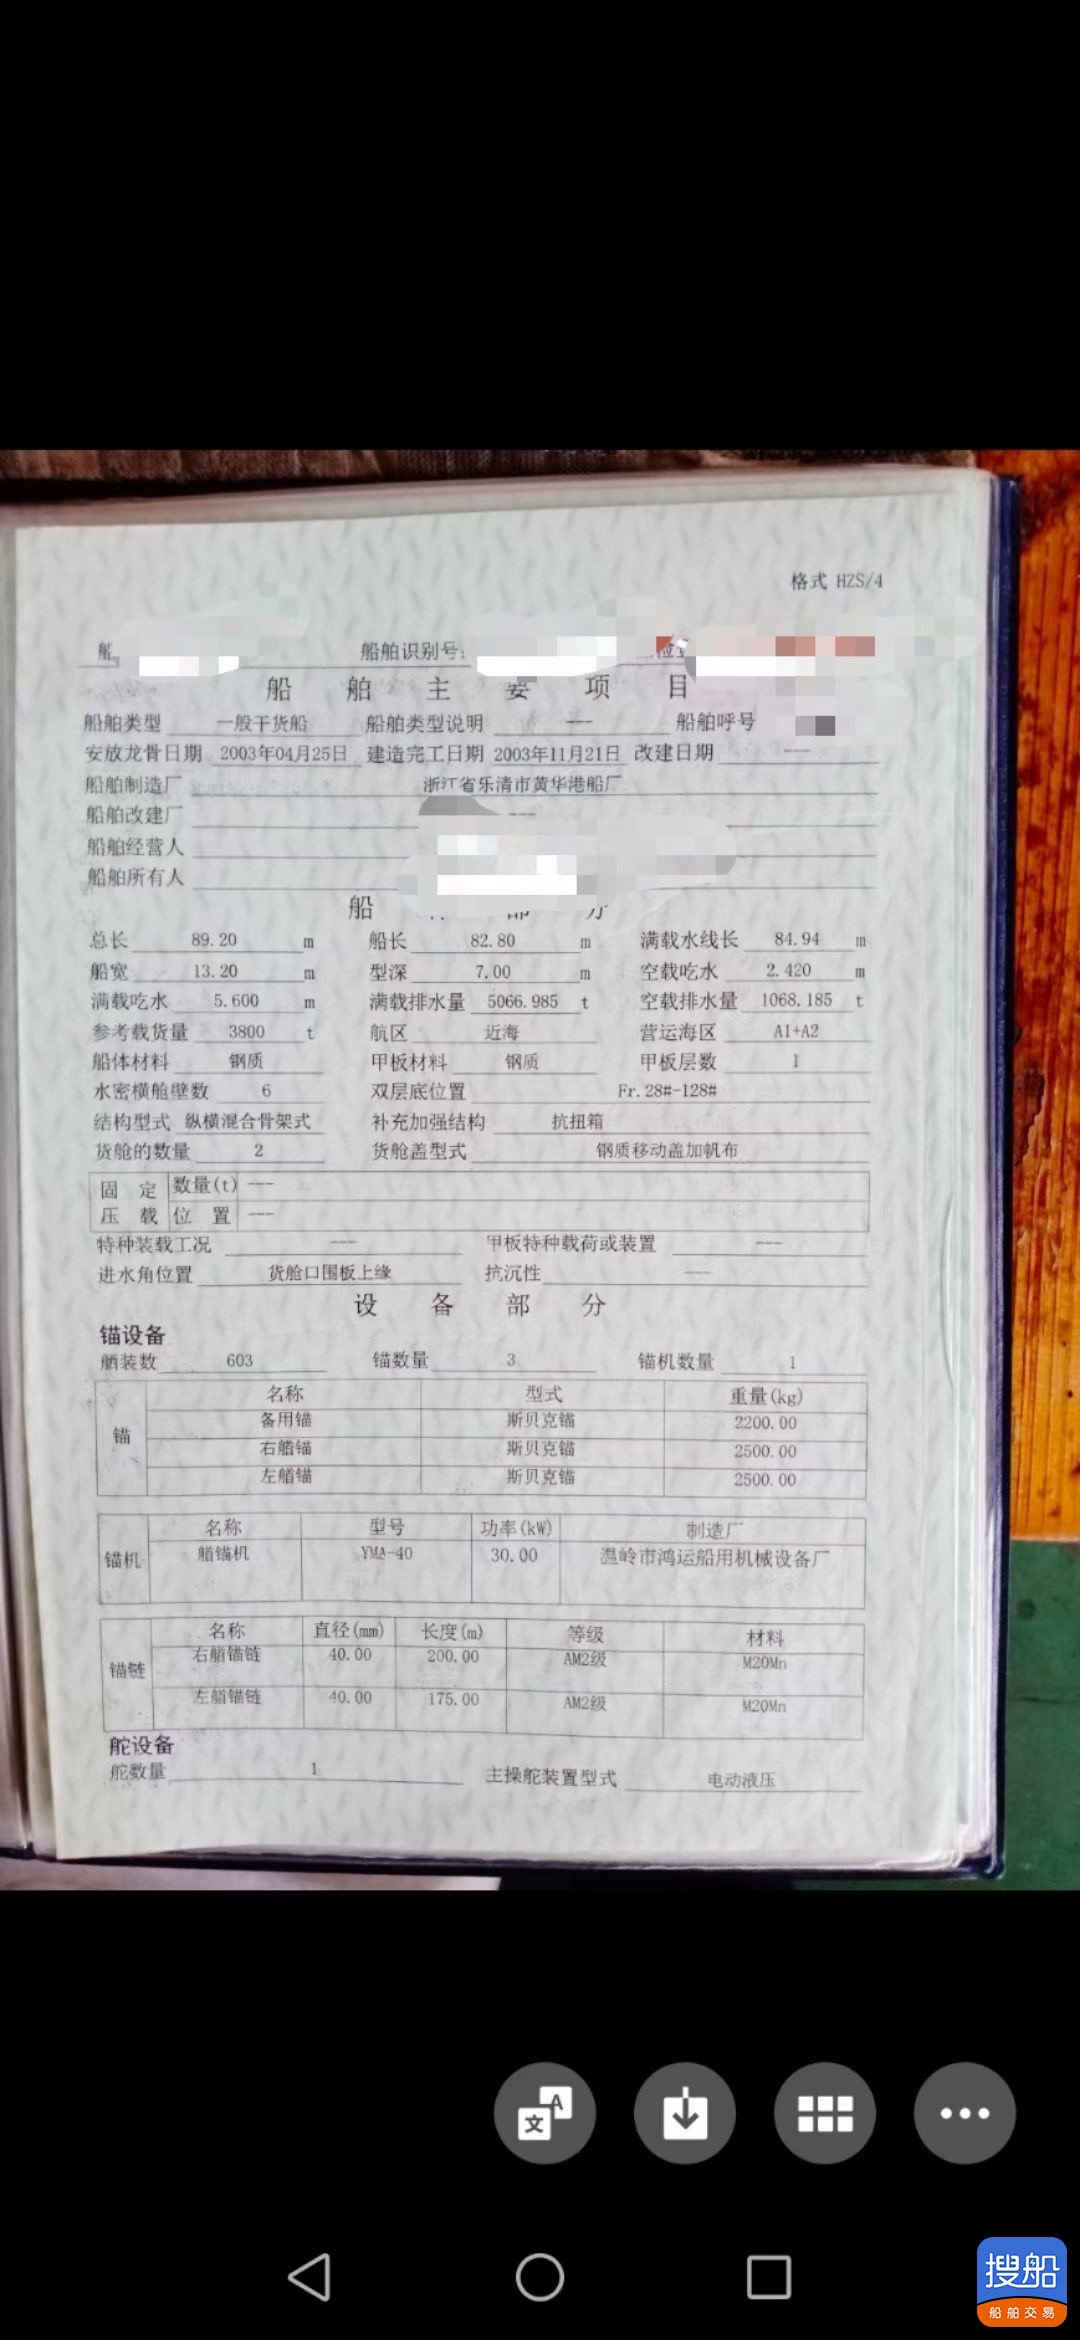 格式 HZS/4
船舶识别号:
船 舶 主 要 项 目
船舶类型 一般干货船 船舶类型说明 --- 船舶呼号
安放龙骨日期 2003年04月25日 建造完工日期 2003年11月21日 改建日期 ---
船舶制造厂 浙江省乐清市黄华港船厂
船舶改建厂 ---
船舶经营人
船舶所有人
船
总长 89.20 m 船长 82.80 m 满载水线长 84.94 m
船宽 13.20 m 型深 7.00 m 空载吃水 2.420 m
满载吃水 5.600 m 满载排水量 5066.985 t 空载排水量 1068.185 t
参考载货量 3800 t 航区 近海 营运海区 A1+A2
船体材料 钢质 甲板材料 钢质 甲板层数 1
水密横舱壁数 6 双层底位置 Fr.28#-128#
结构型式 纵横混合骨架式 补充加强结构 抗扭箱
货舱的数量 2 货舱盖型式 钢质移动盖加帆布
固 定 数量(t) ---
压 载 位 置 ---
特种装载工况 --- 甲板特种载荷或装置 ---
进水角位置 货舱口围板上缘 抗沉性 ---
设 备 部 分
锚设备
舾装数 603 锚数量 3 锚机数量 1
锚 名称 型式 重量(kg)
备用锚 斯贝克锚 2200.00
右艏锚 斯贝克锚 2500.00
左艏锚 斯贝克锚 2500.00
锚机 名称 型号 功率(kW) 制造厂
艏锚机 YMA-40 30.00 温岭市鸿运船用机械设备厂
锚链 名称 直径(mm) 长度(m) 等级 材料
右艏锚链 40.00 200.00 AM2级 M20Mn
左艏锚链 40.00 175.00 AM2级 M20Mn
舵设备
舵数量 1 主操舵装置型式 电动液压
文 A
搜船
船舶交易